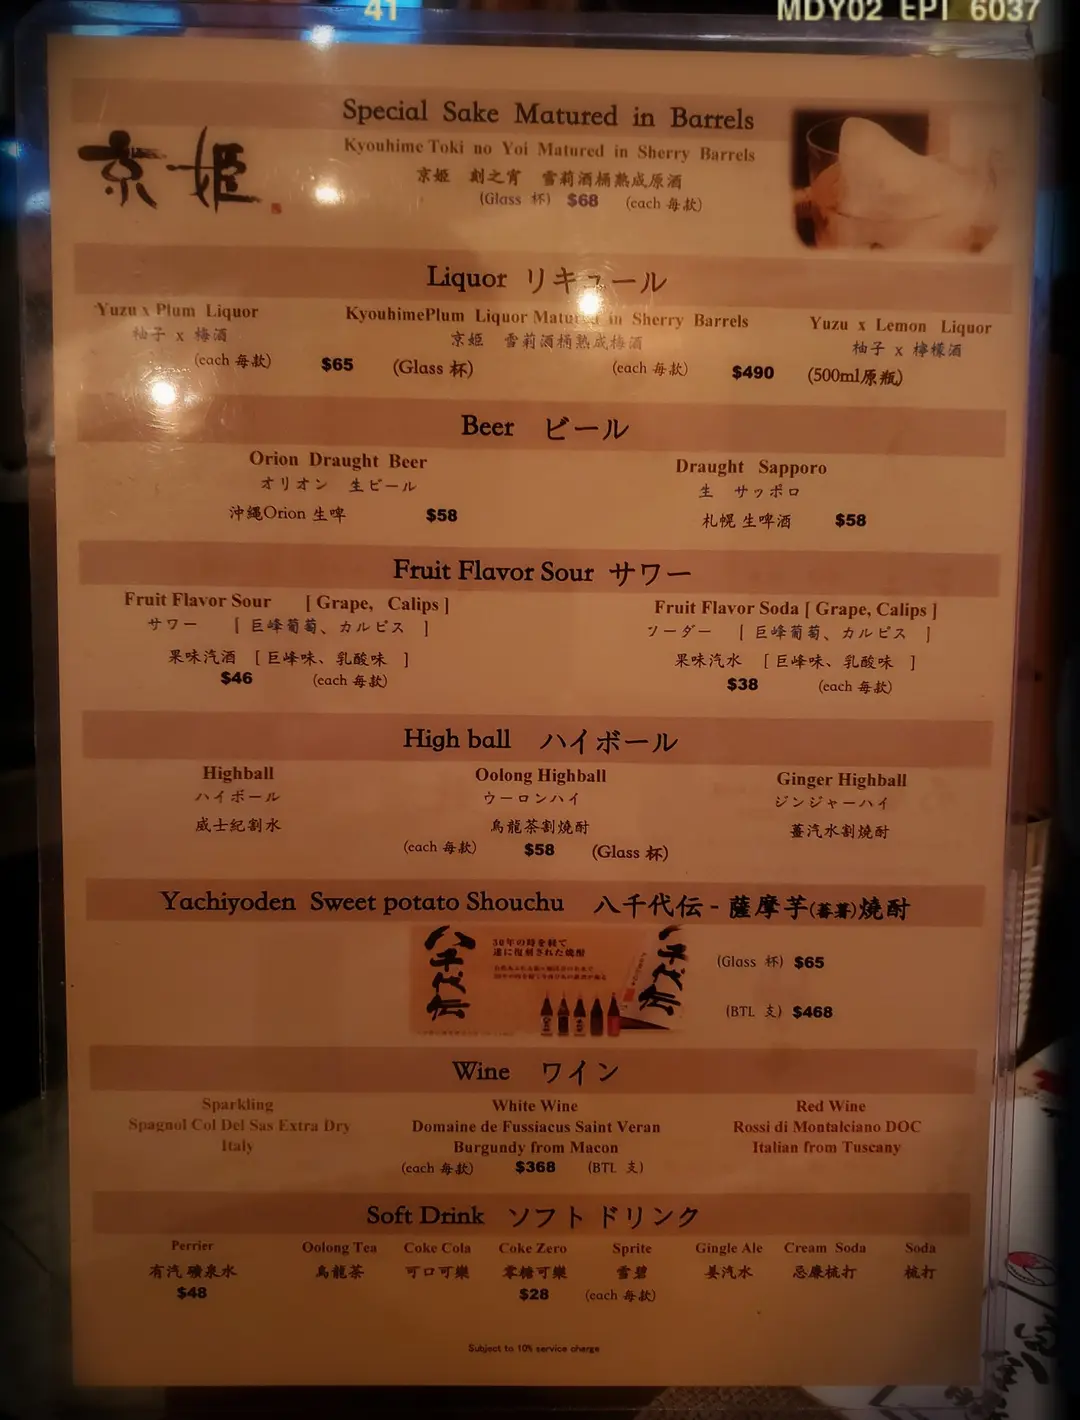 41
MDY02 EPI 6037
Special Sake Matured in Barrels
京姫
Kyouhime Toki no Yoi Matured in Sherry Barrels
京姬 刻之宵 雪莉酒桶熟成原酒
(Glass 杯) $68 (each 每款)
Liquor リキュール
Yuzu x Plum Liquor KyouhimePlum Liquor Matured in Sherry Barrels Yuzu x Lemon Liquor
柚子 x 梅酒 京姬 雪莉酒桶熟成梅酒 柚子 x 檸檬酒
(each 每款) $65 (Glass 杯) (each 每款) $490 (500ml原瓶)
Beer ビール
Orion Draught Beer Draught Sapporo
オリオン 生ビール 生 サッポロ
沖縄Orion 生啤 $58 札幌 生啤酒 $58
Fruit Flavor Sour サワー
Fruit Flavor Sour [ Grape, Calips ] Fruit Flavor Soda [ Grape, Calips ]
サワー [ 巨峰葡萄、カルピス ] ソーダー [ 巨峰葡萄、カルピス ]
果味汽酒 [ 巨峰味、乳酸味 ] 果味汽水 [ 巨峰味、乳酸味 ]
$46 (each 每款) $38 (each 每款)
High ball ハイボール
Highball Oolong Highball Ginger Highball
ハイボール ウーロンハイ ジンジャーハイ
威士紀割水 烏龍茶割焼酎 薑汽水割焼酎
(each 每款) $58 (Glass 杯)
Yachiyoden Sweet potato Shouchu 八千代伝 - 薩摩芋(蕃薯)焼酎
八千代伝
30年の時を経て
遂に復刻された焼酎
八千代伝
(Glass 杯) $65
(BTL 支) $468
Wine ワイン
Sparkling White Wine Red Wine
Spagnol Col Del Sas Extra Dry Domaine de Fussiacus Saint Veran Rossi di Montalciano DOC
Italy Burgundy from Macon Italian from Tuscany
(each 每款) $368 (BTL 支)
Soft Drink ソフトドリンク
Perrier Oolong Tea Coke Cola Coke Zero Sprite Gingle Ale Cream Soda Soda
有汽礦泉水 烏龍茶 可口可樂 零糖可樂 雪碧 姜汽水 忌廉梳打 梳打
$48 $28 (each 每款)
Subject to 10% service charge